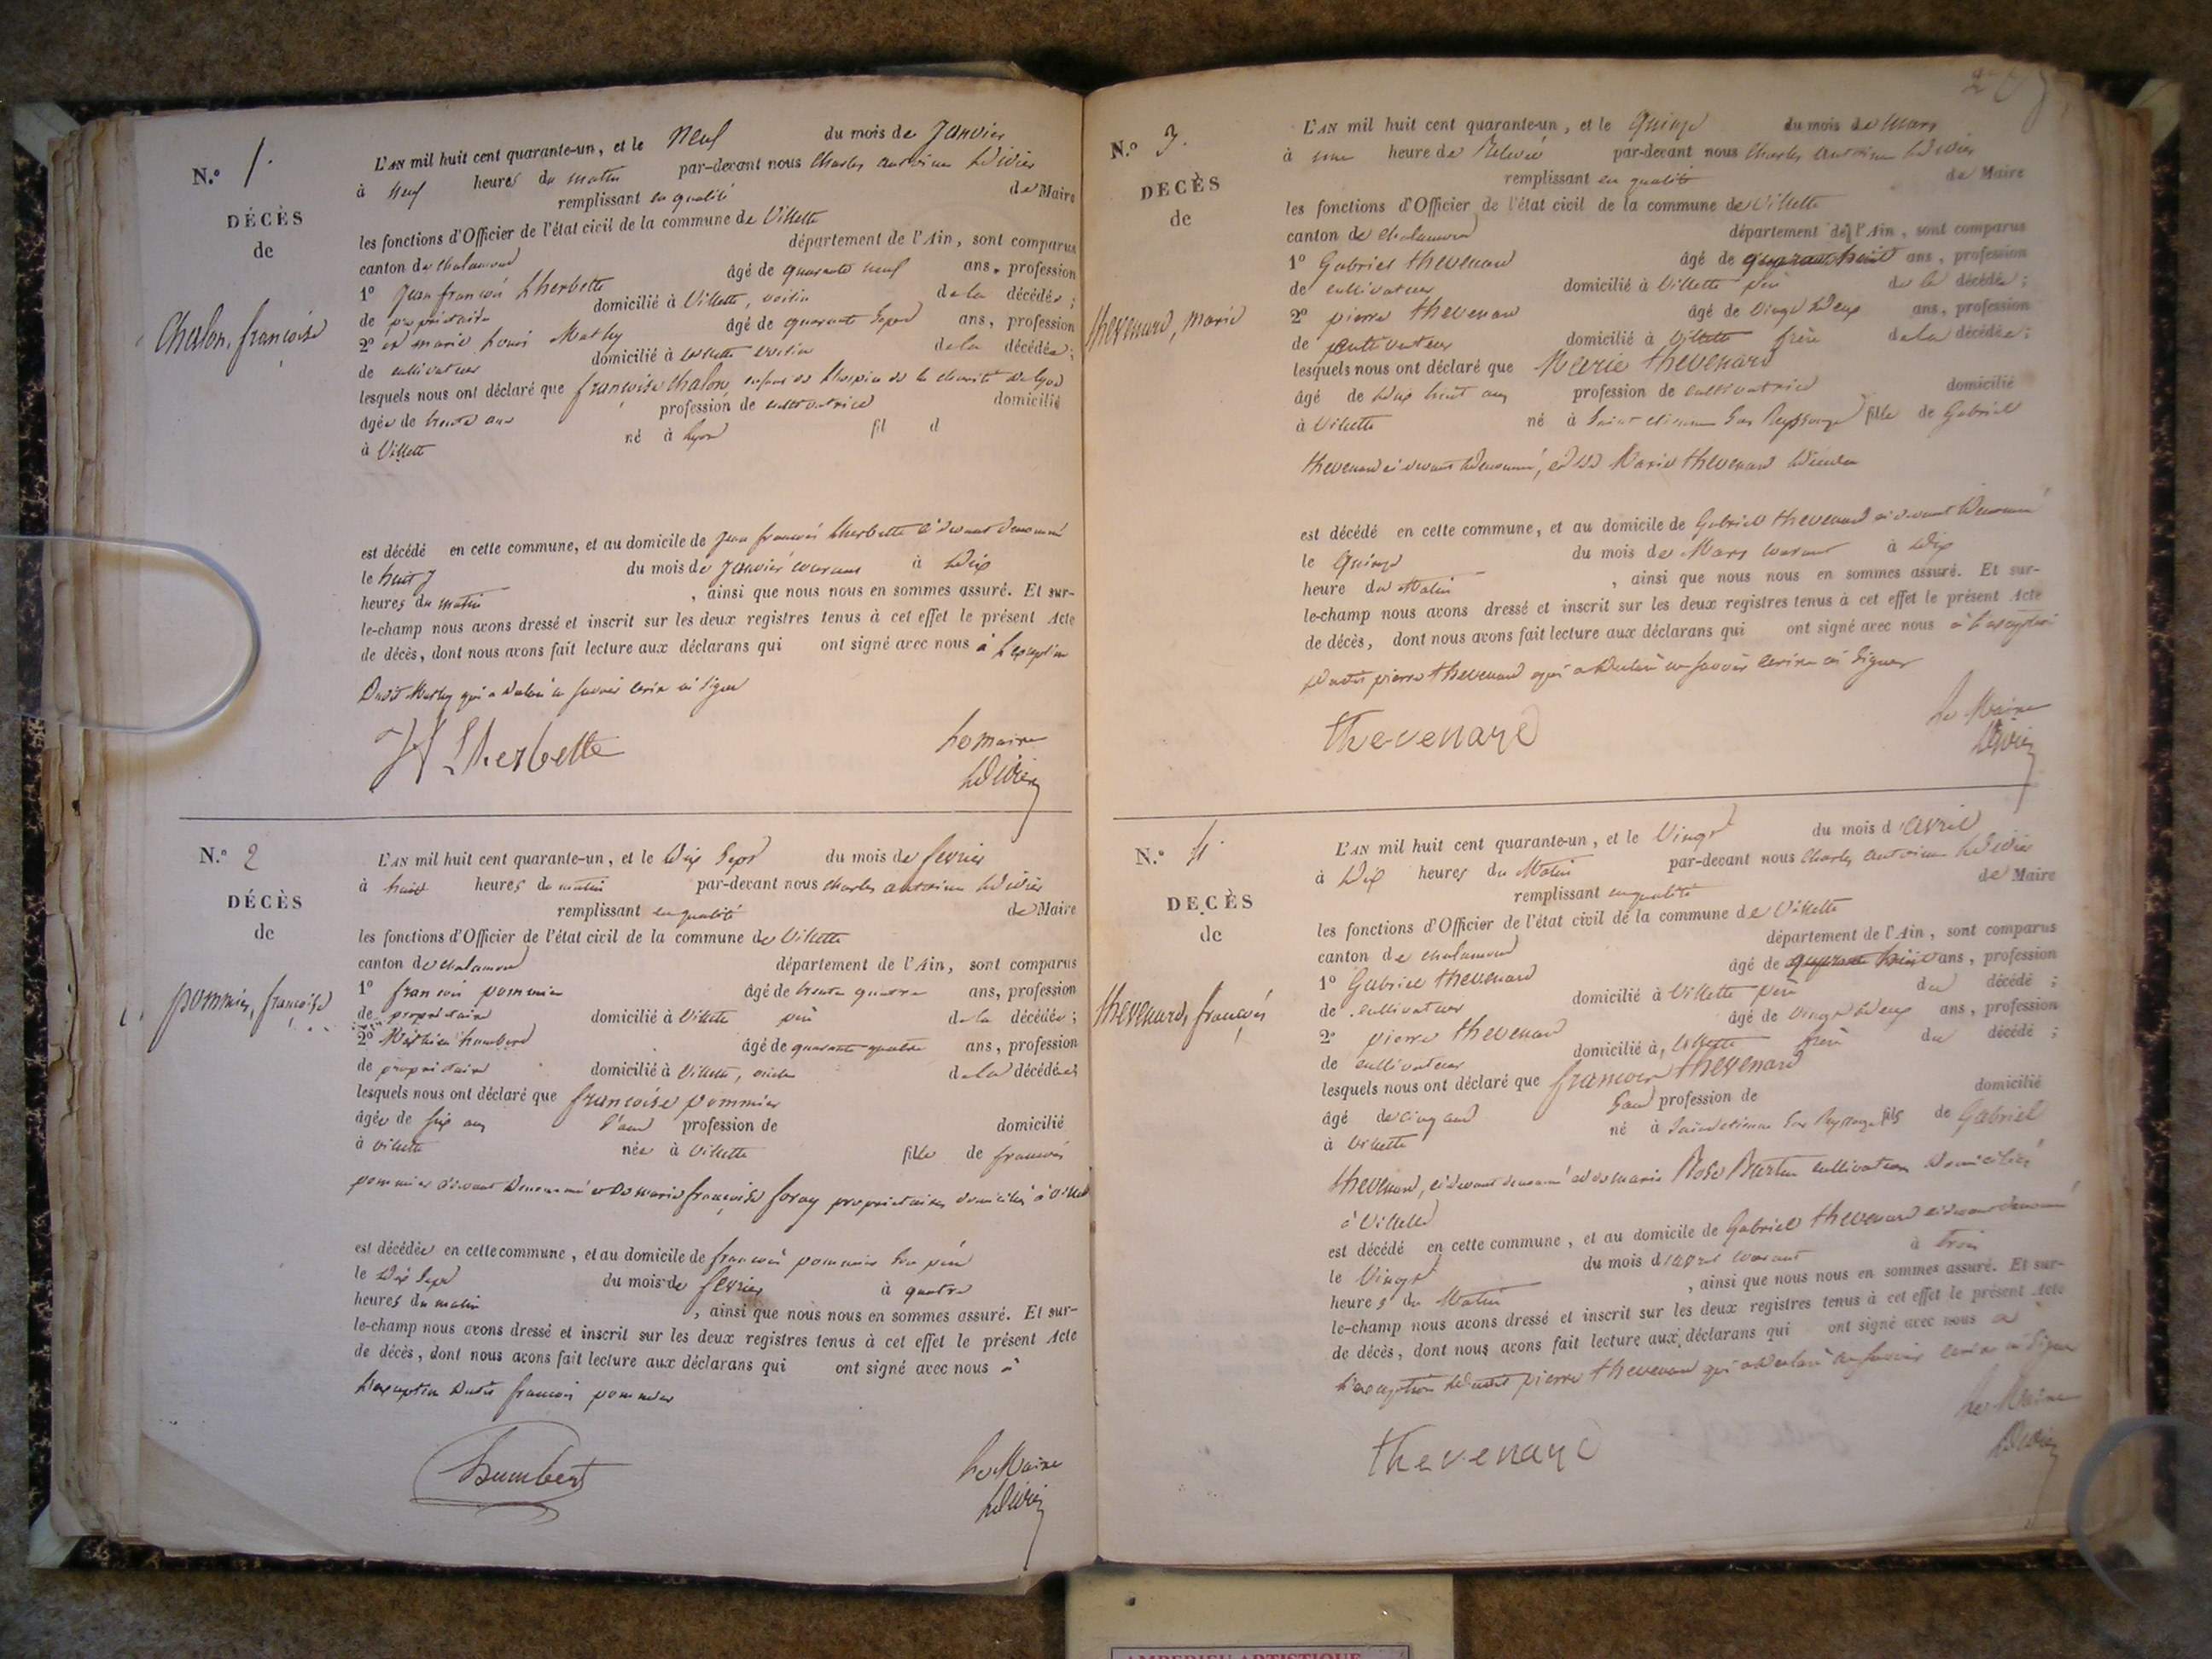 N.º 1.
DÉCÈS
de
Chalon, françoise
L'AN mil huit cent quarante-un, et le neuf du mois de Janvier
à neuf heures du matin par-devant nous Charles antoine
remplissant en qualité de Maire
les fonctions d'Officier de l'état civil de la commune de Villette
canton de chalamond département de l'Ain, sont comparus
1º Jean françois Lherbette âgé de quarante neuf ans, profession
de propriétaire domicilié à Villette, voisin de la décédée;
2º marie Mathy âgé de quarante sept ans, profession
de cultivateur domicilié à villette voisin de la décédée;
lesquels nous ont déclaré que françoise chalon, enfant de Lhospice de la charité de Lyon
âgée de trente ans profession de cultivatrice domicilié
à Villette né à Lyon fil d
est décédé en cette commune, et au domicile de Jean françois Lherbette ci devant denommé
le huit du mois de Janvier courant à dix
heures du matin, ainsi que nous nous en sommes assuré. Et sur-
le-champ nous avons dressé et inscrit sur les deux registres tenus à cet effet le présent Acte
de décès, dont nous avons fait lecture aux déclarans qui ont signé avec nous à Lexception
Dudit Mathy qui a déclaré ne savoir ecrire ni signer
Lherbette
Le maire
N.º 2
DÉCÈS
de
pommier, françoise
L'AN mil huit cent quarante-un, et le dix sept du mois de fevrier
à huit heures du matin par-devant nous charles antoine
remplissant en qualité de Maire
les fonctions d'Officier de l'état civil de la commune de Villette
canton de chalamond département de l'Ain, sont comparus
1º françois pommier âgé de trente quatre ans, profession
de propriétaire domicilié à Villette père de la décédée;
2º humbert âgé de quarante quatre ans, profession
de propriétaire domicilié à Villette, de la décédée;
lesquels nous ont déclaré que françoise pommier
âgée de six ans Sans profession de domicilié
à villette née à Villette fille de françois
pommier ci devant denommé et de marie françoise foray propriétaires domiciliés à Villette
est décédée en cette commune, et au domicile de françois pommier son père
le dix sept du mois de fevrier à quatre
heures du matin, ainsi que nous nous en sommes assuré. Et sur-
le-champ nous avons dressé et inscrit sur les deux registres tenus à cet effet le présent Acte
de décès, dont nous avons fait lecture aux déclarans qui ont signé avec nous à
Lexception dudit françois pommier
Humbert
Le Maire
N.º 3.
DECÈS
de
thevenard, marie
L'AN mil huit cent quarante-un, et le quinze du mois de Mars
à une heure de Relevée par-devant nous Charles antoine
remplissant en qualité de Maire
les fonctions d'Officier de l'état civil de la commune de Villette
canton de chalamond département de l'Ain, sont comparus
1º Gabriel thevenard âgé de quarante huit ans, profession
de cultivateur domicilié à Villette père de la décédée;
2º pierre thevenard âgé de vingt deux ans, profession
de cultivateur domicilié à Villette frère de la décédée;
lesquels nous ont déclaré que Marie thevenard
âgé de dix huit ans profession de cultivatrice domicilié
à Villette né à Saint etienne Sur Reyssouze fille de Gabriel
thevenard ci devant denommé, et de Marie thevenard
est décédé en cette commune, et au domicile de Gabriel thevenard ci devant denommé
le quinze du mois de Mars courant à dix
heure du Matin, ainsi que nous nous en sommes assuré. Et sur-
le-champ nous avons dressé et inscrit sur les deux registres tenus à cet effet le présent Acte
de décès, dont nous avons fait lecture aux déclarans qui ont signé avec nous à l'exception
dudit pierre thevenard qui a déclaré ne savoir ecrire ni signer
thevenard
Le Maire
N.º 4.
DECÈS
de
thevenard, françois
L'AN mil huit cent quarante-un, et le vingt du mois d'avril
à dix heures du Matin par-devant nous Charles antoine
remplissant en qualité de Maire
les fonctions d'Officier de l'état civil de la commune de Villette
canton de chalamond département de l'Ain, sont comparus
1º Gabriel thevenard âgé de quarante huit ans, profession
de cultivateur domicilié à Villette père du décédé;
2º pierre thevenard âgé de vingt deux ans, profession
de cultivateur domicilié à Villette frère du décédé;
lesquels nous ont déclaré que françois thevenard
âgé de cinq ans Sans profession de domicilié
à Villette né à Saint etienne Sur Reyssouze fils de Gabriel
thevenard, ci devant denommé et de marie Rose cultivateurs domiciliés
à Villette
est décédé en cette commune, et au domicile de Gabriel thevenard ci devant denommé
le vingt du mois d'avril courant à trois
heures du Matin, ainsi que nous nous en sommes assuré. Et sur-
le-champ nous avons dressé et inscrit sur les deux registres tenus à cet effet le présent Acte
de décès, dont nous avons fait lecture aux déclarans qui ont signé avec nous à
l'exception dudit pierre thevenard qui a déclaré ne savoir ecrire ni signer
thevenard
Le Maire
AMBERIEU ARTISTIQUE